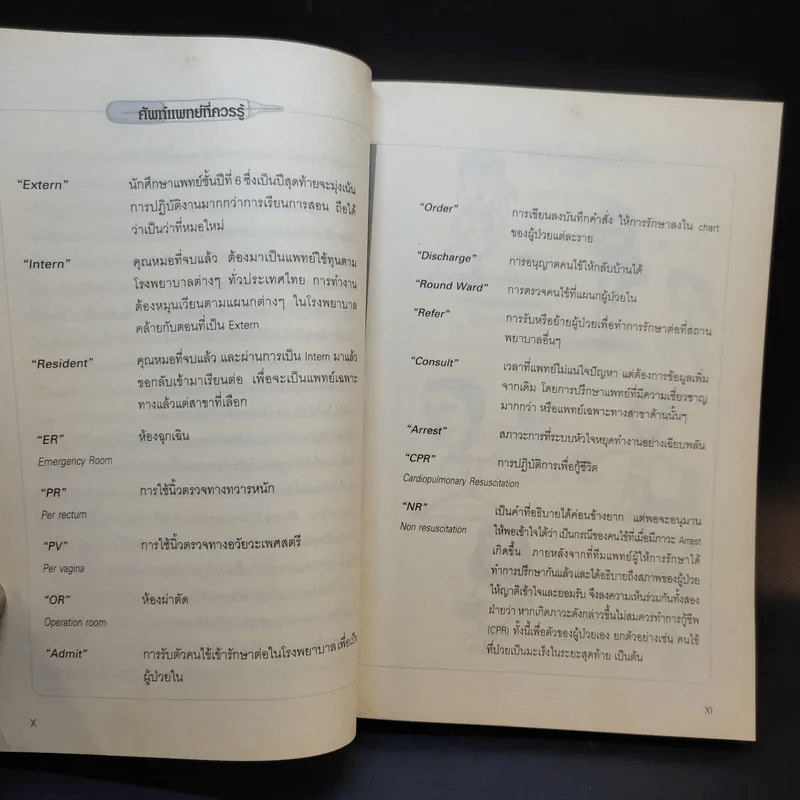 ศัพท์แพทย์ที่ควรรู้
“Extern” นักศึกษาแพทย์ชั้นปีที่ 6 ซึ่งเป็นปีสุดท้ายจะมุ่งเน้น
การปฏิบัติงานมากกว่าการเรียนการสอน ถือได้
ว่าเป็นว่าที่หมอใหม่
“Intern” คุณหมอที่จบแล้ว ต้องมาเป็นแพทย์ใช้ทุนตาม
โรงพยาบาลต่างๆ ทั่วประเทศไทย การทำงาน
ต้องหมุนเวียนตามแผนกต่างๆ ในโรงพยาบาล
คล้ายกับตอนที่เป็น Extern
“Resident” คุณหมอที่จบแล้ว และผ่านการเป็น Intern มาแล้ว
ขอกลับเข้ามาเรียนต่อ เพื่อจะเป็นแพทย์เฉพาะ
ทางแล้วแต่สาขาที่เลือก
“ER” ห้องฉุกเฉิน
Emergency Room
“PR” การใช้นิ้วตรวจทางทวารหนัก
Per rectum
“PV” การใช้นิ้วตรวจทางอวัยวะเพศสตรี
Per vagina
“OR” ห้องผ่าตัด
Operation room
“Admit” การรับตัวคนไข้เข้ารักษาต่อในโรงพยาบาล เพื่อเป็น
ผู้ป่วยใน
X
“Order” การเขียนลงบันทึกคำสั่ง ให้การรักษาลงใน chart
ของผู้ป่วยแต่ละราย
“Discharge” การอนุญาตคนไข้ให้กลับบ้านได้
“Round Ward” การตรวจคนไข้ที่แผนกผู้ป่วยใน
“Refer” การรับหรือย้ายผู้ป่วยเพื่อทำการรักษาต่อที่สถาน
พยาบาลอื่นๆ
“Consult” เวลาที่แพทย์ไม่แน่ใจปัญหา แต่ต้องการข้อมูลเพิ่ม
จากเดิม โดยการปรึกษาแพทย์ที่มีความเชี่ยวชาญ
มากกว่า หรือแพทย์เฉพาะทางสาขาด้านนั้นๆ
“Arrest” สภาวะการที่ระบบหัวใจหยุดทำงานอย่างเฉียบพลัน
“CPR” การปฏิบัติการเพื่อกู้ชีวิต
Cardiopulmonary Resuscitation
“NR” เป็นคำที่อธิบายได้ค่อนข้างยาก แต่พอจะอนุมาน
Non resuscitation ให้พอเข้าใจได้ว่า เป็นกรณีของคนไข้ที่เมื่อมีภาวะ Arrest
เกิดขึ้น ภายหลังจากที่ทีมแพทย์ผู้ให้การรักษาได้
ทำการปรึกษากันแล้ว และได้อธิบายถึงสภาพของผู้ป่วย
ให้ญาติเข้าใจและยอมรับ จึงลงความเห็นร่วมกันทั้งสอง
ฝ่ายว่า หากเกิดภาวะดังกล่าวขึ้นไม่สมควรทำการกู้ชีพ
(CPR) ทั้งนี้เพื่อตัวของผู้ป่วยเอง ยกตัวอย่างเช่น คนไข้
ที่ป่วยเป็นมะเร็งในระยะสุดท้าย เป็นต้น
XI